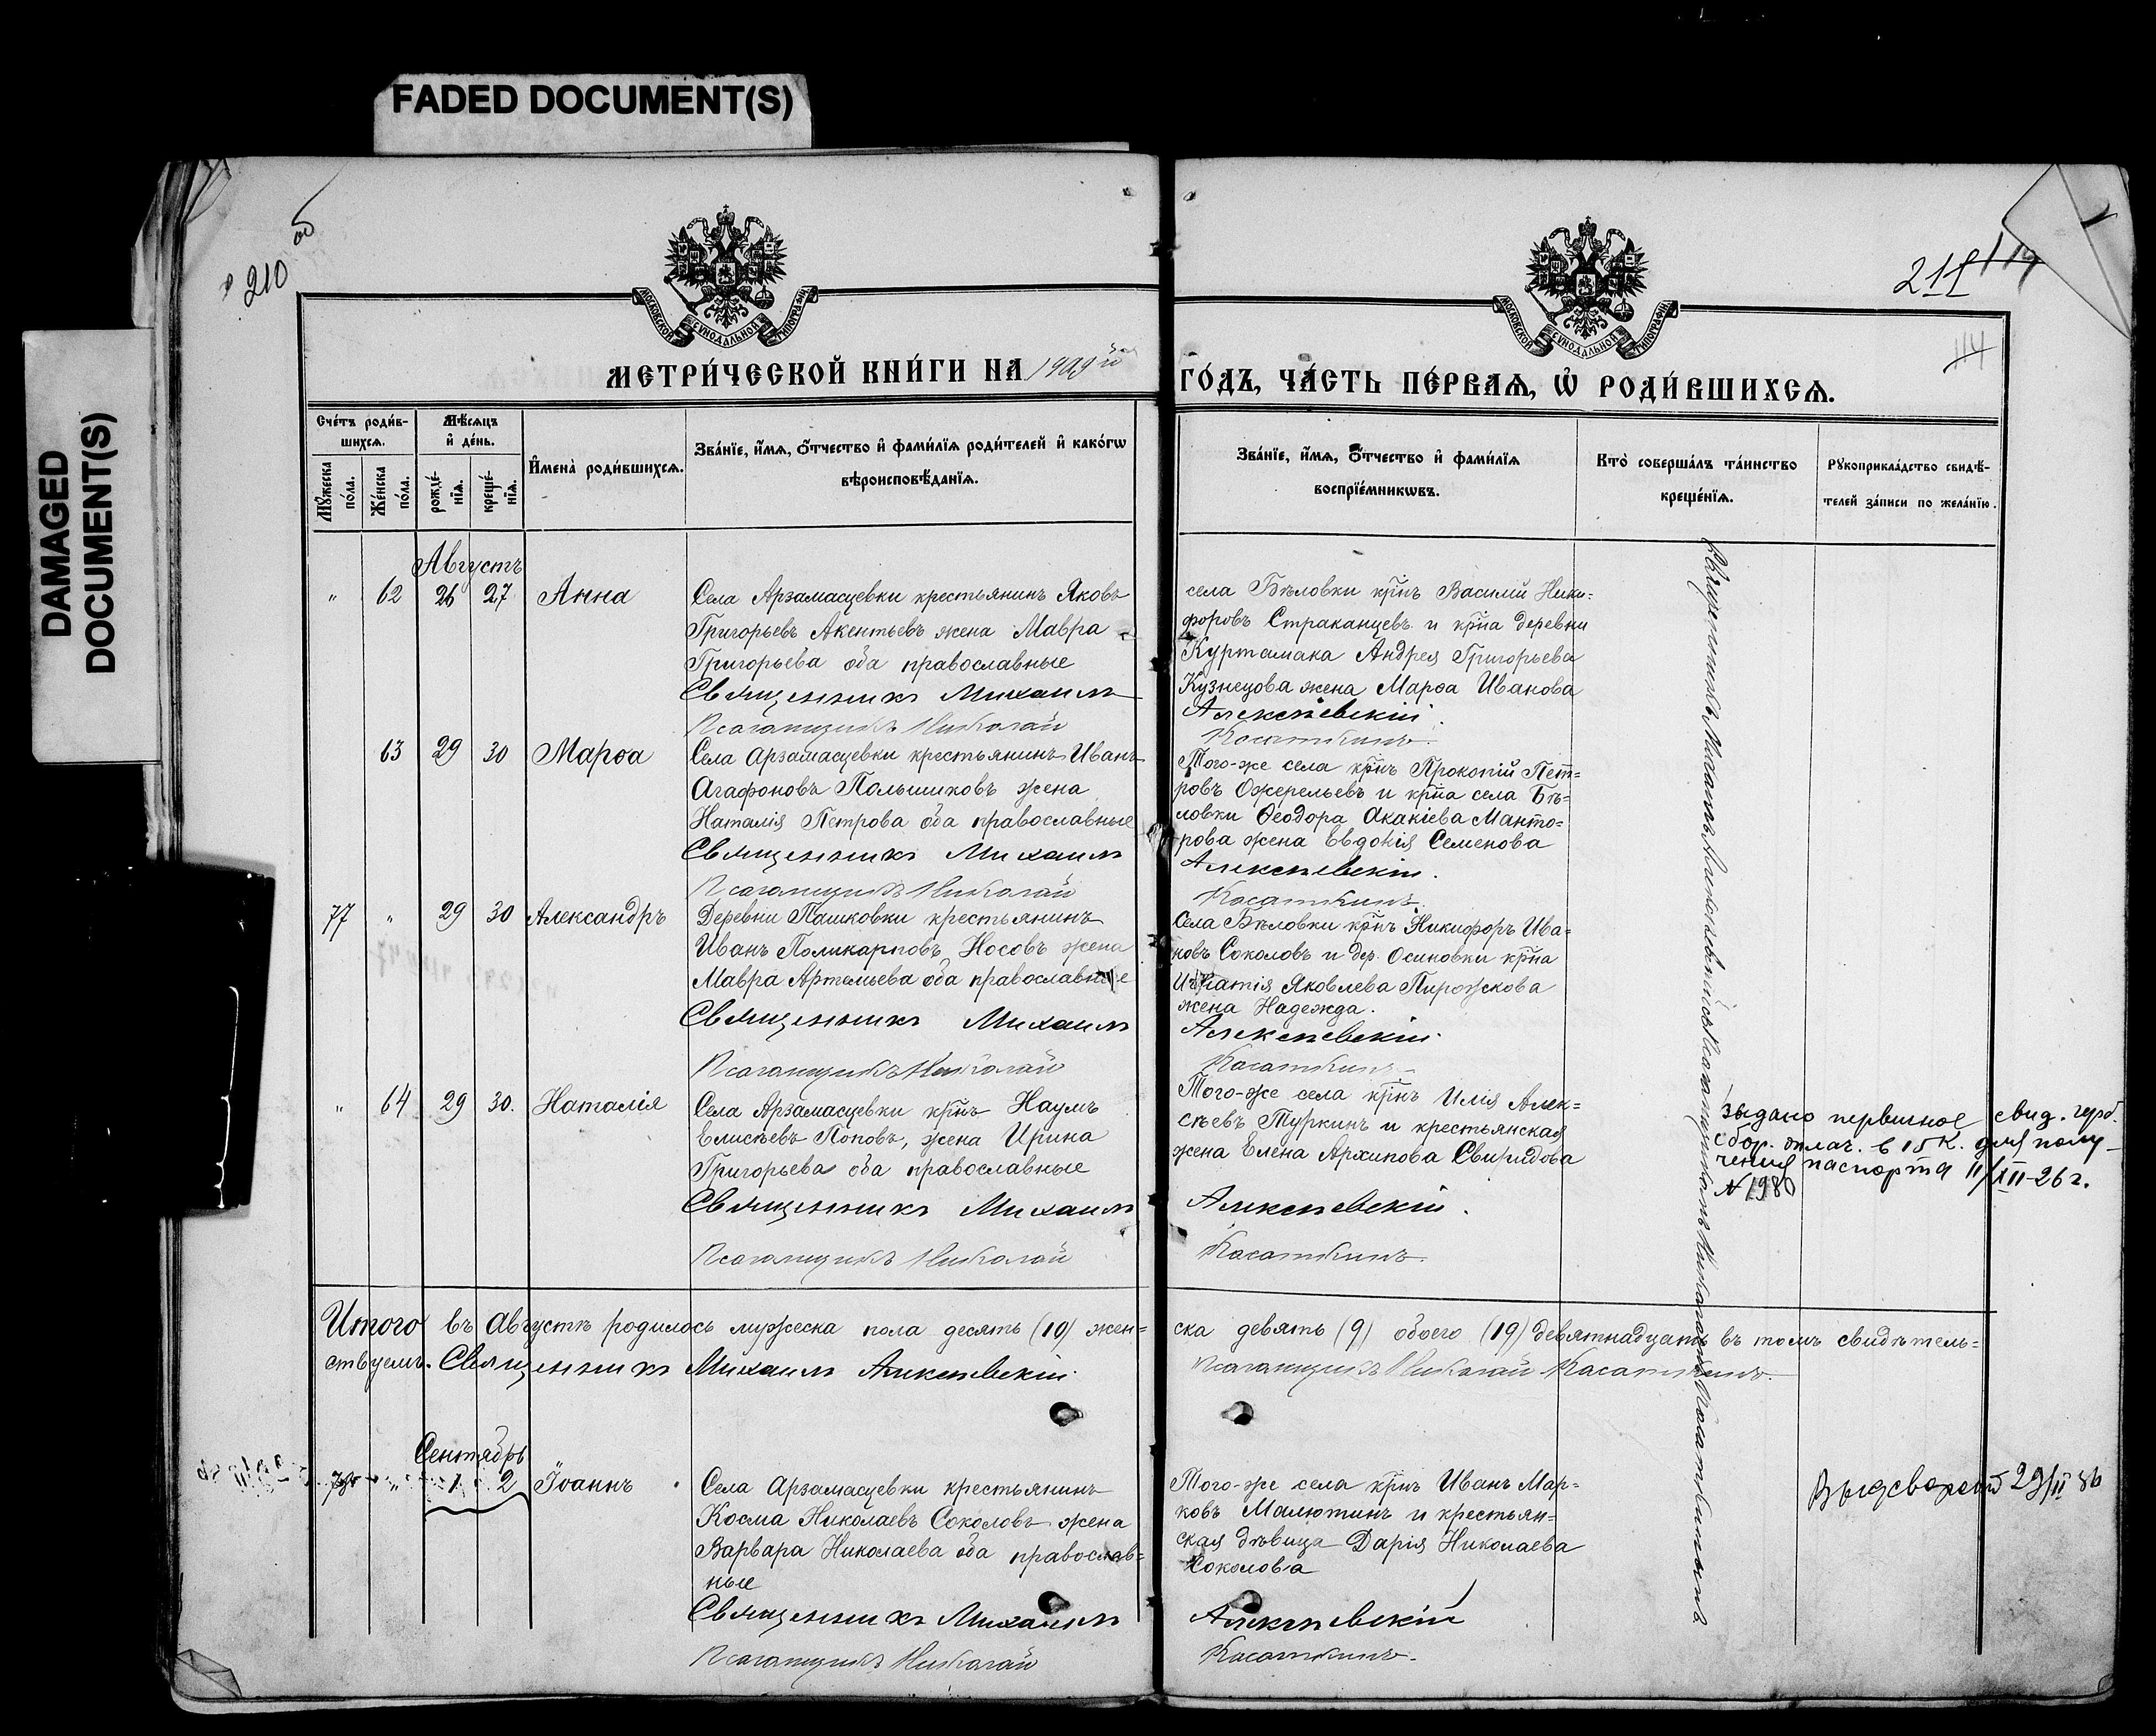 FADED DOCUMENT(S)
DAMAGED
DOCUMENT(S)
210 об
211
114
МОСКОВСКОЙ СѴНОДАЛЬНОЙ ТИПОГРАФІИ
МОСКОВСКОЙ СѴНОДАЛЬНОЙ ТИПОГРАФІИ
МЕТРИ́ЧЕСКОЙ КНИ́ГИ НА 1909й
ГО́ДЪ, ЧА́СТЬ ПЕ́РВАѦ, Ѡ҆ РОДИ́ВШИХСѦ.
Сче́тъ роди́в-
шихсѧ.
Мꙋ́жеска по́ла.
Же́нска по́ла.
Мѣ́сѧцъ
и҆ де́нь.
рожде́-
нїѧ.
креще́-
нїѧ.
И҆мена̀ роди́вшихсѧ.
Зва́нїе, и҆́мѧ, ѻ҆́тчество и҆ фами́лїѧ роди́телей и҆ како́гѡ
вѣроисповѣ́данїѧ.
Зва́нїе, и҆́мѧ, ѻ҆́тчество и҆ фами́лїѧ
воспрїе́мникѡвъ.
Кто̀ соверша́лъ та́инство
креще́нїѧ.
Рꙋкоприкла́дство свидѣ́-
телей за́писи по жела́нїю.
Августъ
" 62 26 27 Анна
Села Арзамасцевки крестьянинъ Яковъ
Григорьевъ Акентьевъ жена Мавра
Григорьева оба православные
Священникъ Михаилъ
Псаломщикъ Николай
села Бѣловки кр̃нъ Василій Ники=
форовъ Страканцевъ и кр̃на деревни
Куртамака Андрея Григорьева
Кузнецова жена Марѳа Иванова
Алексѣевскій.
Касаткинъ.
63 29 30 Марѳа
Села Арзамасцевки крестьянинъ Иванъ
Агафоновъ Полышиковъ жена
Наталія Петрова оба православные
Священникъ Михаилъ
Псаломщикъ Николай
Того-же села кр̃нъ Прокопій Пет=
ровъ Ожерельевъ и кр̃на села Бѣ=
ловки Ѳеодора Акакіева Манто=
рова жена Евдокія Семенова
Алексѣевскій.
Касаткинъ.
77 " 29 30 Александръ
Деревни Пашковки крестьянинъ
Иванъ Поликарповъ Носовъ жена
Мавра Артемьева оба православные
Священникъ Михаилъ
Псаломщикъ Николай
Села Бѣловки кр̃нъ Никифоръ Ива=
новъ Соколовъ и дер. Осиновки кр̃на
Игнатія Яковлева Пирожкова
жена Надежда.
Алексѣевскій.
Касаткинъ.
" 64 29 30. Наталія
Села Арзамасцевки кр̃нъ Наумъ
Елисѣевъ Поповъ, жена Ирина
Григорьева оба православные
Священникъ Михаилъ
Псаломщикъ Николай
Того-же села кр̃нъ Илія Алек=
сѣевъ Туркинъ и крестьянская
жена Елена Архипова Свиридова
Алексѣевскій.
Касаткинъ.
Священникъ Михаилъ Алексѣевскій съ Псаломщикомъ Николаемъ Касаткинымъ
выдано первичное свид. герб.
сбор. оплач. в 15 к. для полу-
чения паспорта 11/XII-26 г.
№ 1980
Итого въ Августѣ родилось мужеска пола десять (10) жен=
ска девять (9) обоего (19) девятнадцать въ томъ свидѣтель=
ствуемъ. Священникъ Михаилъ Алексѣевскій
Псаломщикъ Николай Касаткинъ.
Сентябрь
78 " 1 2 Іоаннъ
Села Арзамасцевки крестьянинъ
Косма Николаевъ Соколовъ жена
Варвара Николаева оба православ=
ные
Священникъ Михаилъ
Псаломщикъ Николай
Того-же села кр̃нъ Иванъ Мар=
ковъ Малютинъ и крестьян=
ская дѣвица Дарія Николаева
Соколова
Алексѣевскій
Касаткинъ.
29/II 36